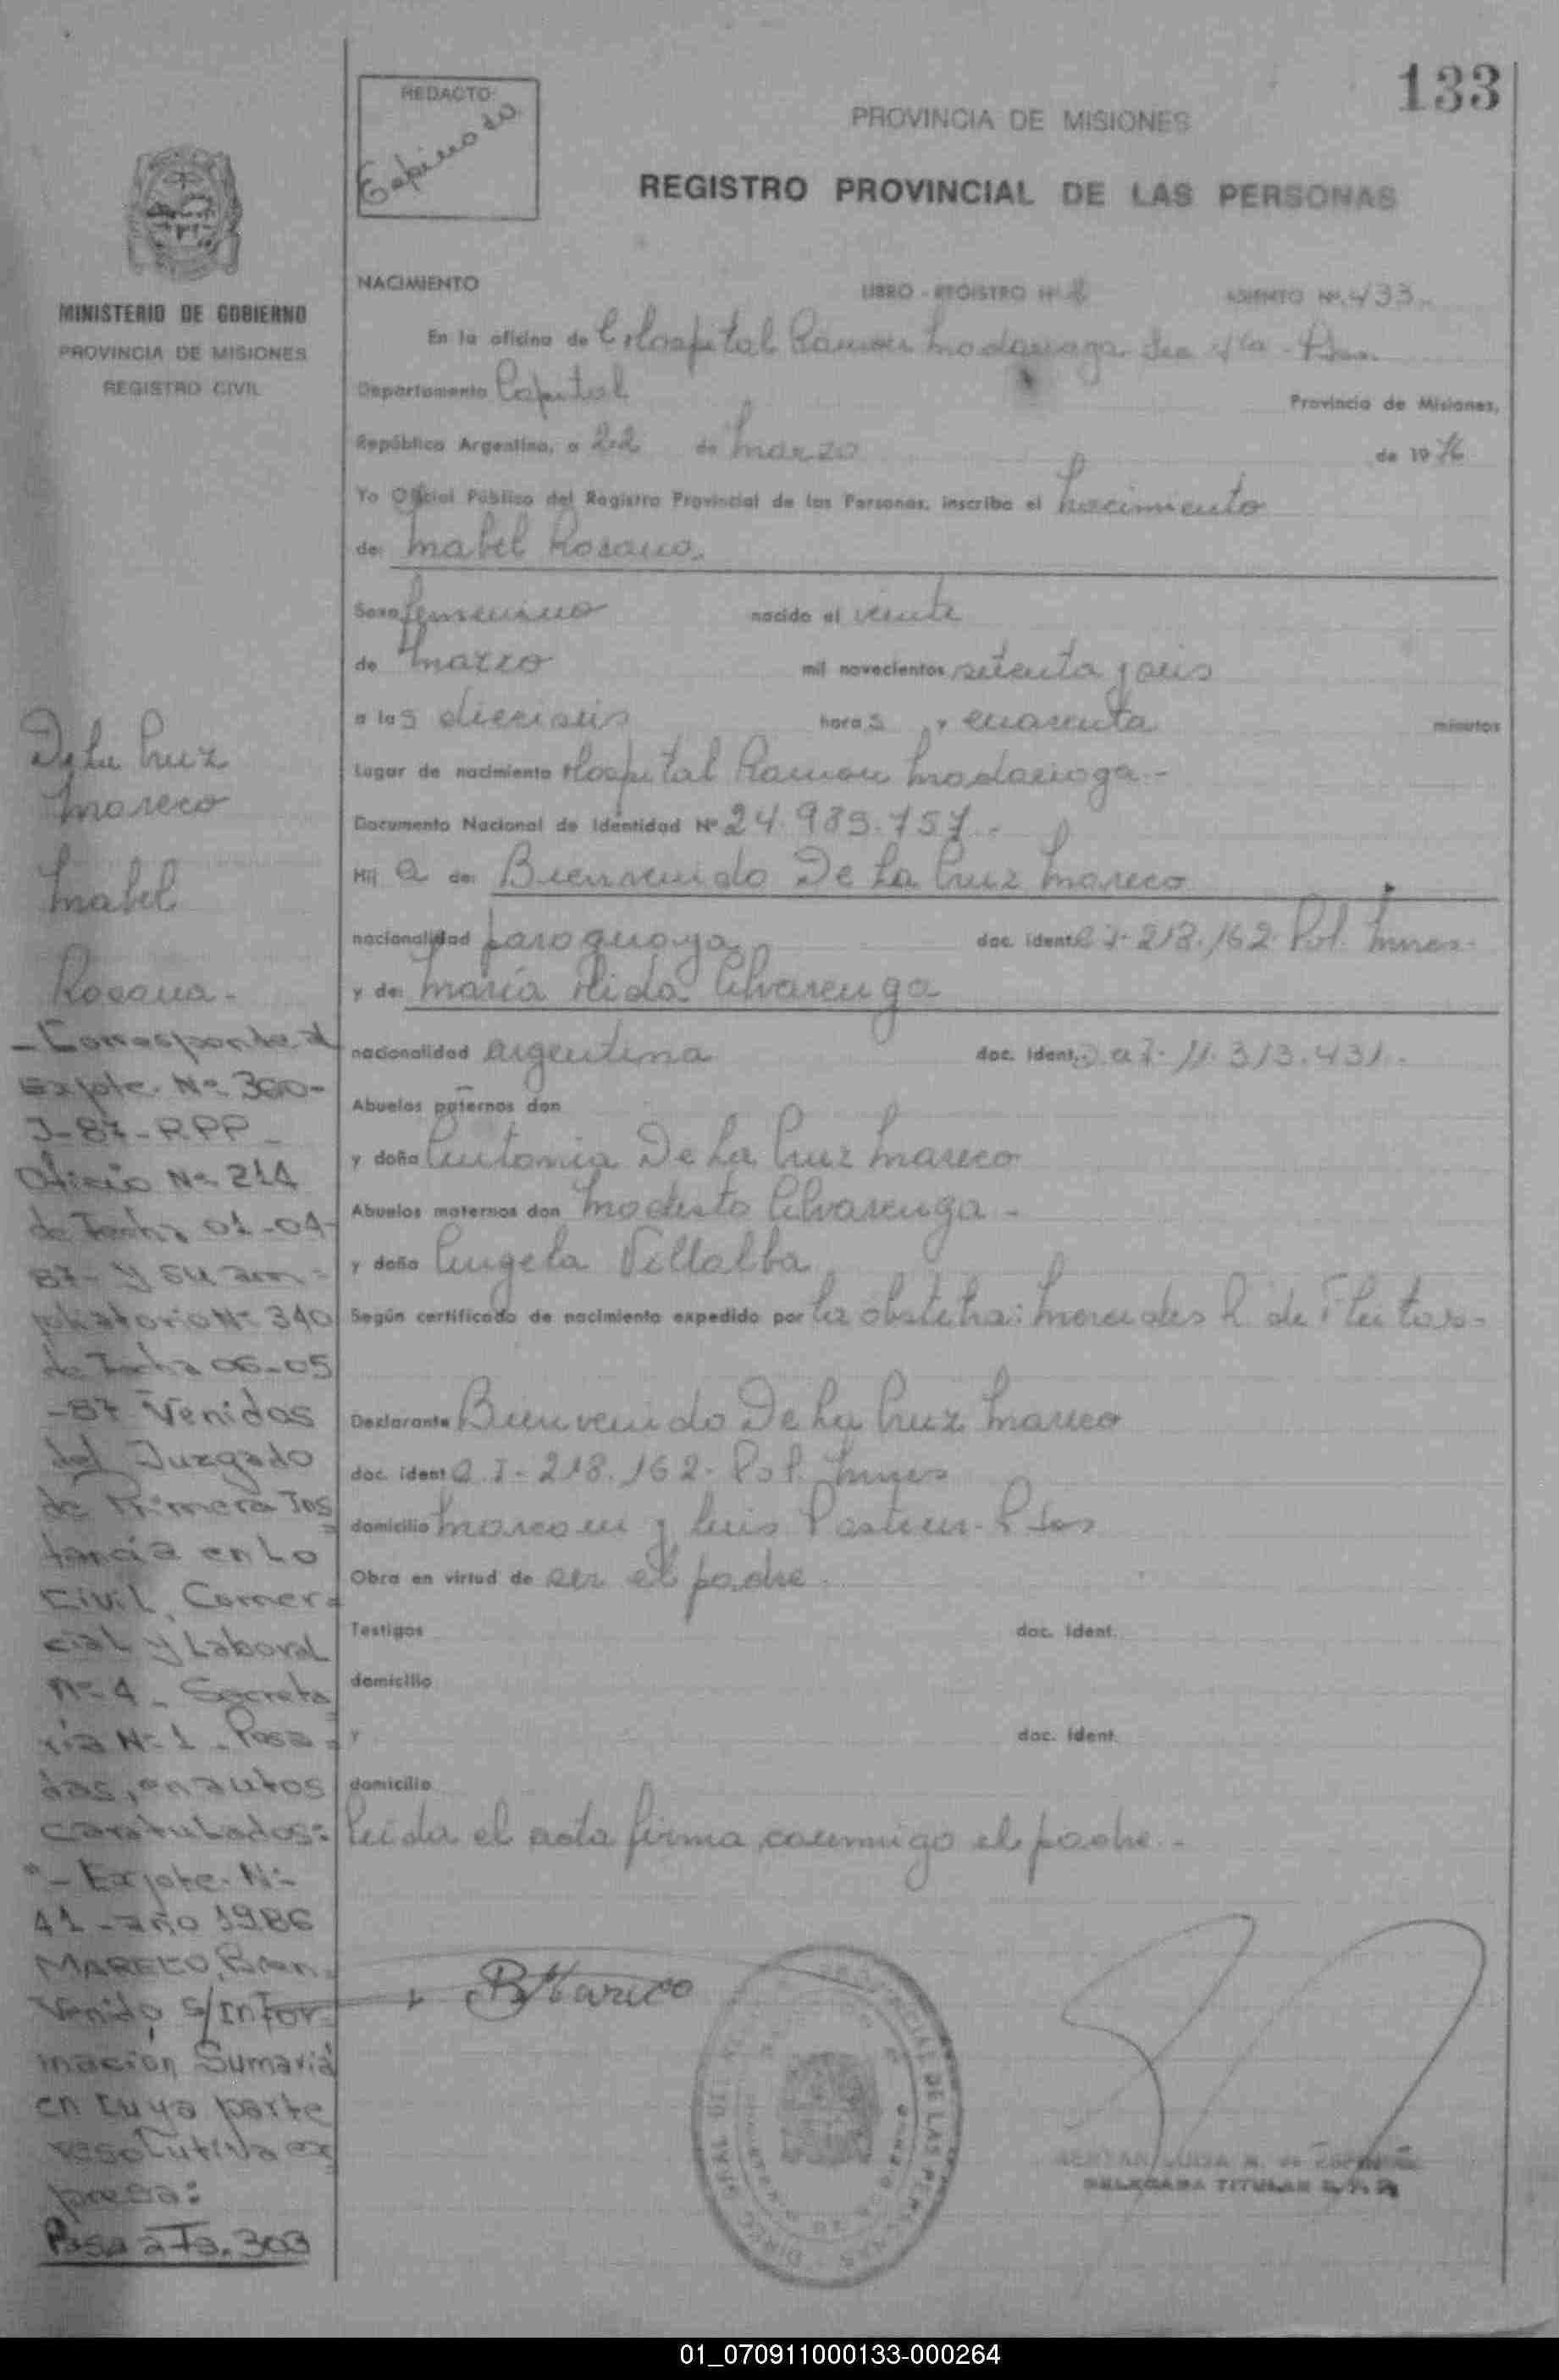 133
REDACTO:
Espinoza
PROVINCIA DE MISIONES
REGISTRO PROVINCIAL DE LAS PERSONAS
MINISTERIO DE GOBIERNO
PROVINCIA DE MISIONES
REGISTRO CIVIL
NACIMIENTO LIBRO - REGISTRO Nº ASIENTO Nº 433-
En la oficina de Hospital Ramon Madariaga Sec
Departamento Capital Provincia de Misiones,
República Argentina, a 22 de Marzo de 1976
Yo Oficial Público del Registro Provincial de las Personas, inscribo el Nacimiento
de: Mabel Rosana.
Sexo femenino nacido el veinte
de Marzo mil novecientos setenta y seis
a las dieciseis horas y cuarenta minutos
Lugar de nacimiento Hospital Ramon Madariaga-
Documento Nacional de Identidad Nº 24.989.757-
Hij a de: Bienvenido De La Cruz Mareco
nacionalidad paraguaya doc. ident. C I- 218.162 Pol. Mnes-
y de: Maria Elida Alvarenga
nacionalidad argentina doc. Ident. 11.313.431-
Abuelos paternos don
y doña Antonia De La Cruz Mareco
Abuelos maternos don Modesto Alvarenga -
y doña Angela Villalba
Según certificado de nacimiento expedido por la obstetra: Mercedes R. de
Declarante Bienvenido De La Cruz Mareco
doc. ident C.I- 218.162- Pol. Mnes
domicilio Marconi y Luis Pasteur- Pdas
Obra en virtud de ser el padre
Testigos doc. Ident.
domicilio
y doc. ident.
domicilio
Leida el acta firma conmigo el padre -
BMareco
DELEGADA TITULAR
De La Cruz
Mareco
Mabel
Rosana-
- Corresponde al
Expte. Nº 360-
J-87-RPP-
Oficio Nº 214
de Fecha 01-04-
87- y su am=
pliatorio Nº 340
de Fecha 06-05
-87 Venidos
del Juzgado
de Primera Ins
tancia en Lo
Civil, Comer=
cial y Laboral
Nº 4 - Secreta
ría Nº 1 - Posa=
das, en autos
caratulados:
"- Expte. Nº
41 - año 1986
MARECO, Bien=
venido s/Infor=
mación Sumaria
en cuya parte
resolutiva ex
presa:
Pasa a Fo. 303
01_070911000133-000264